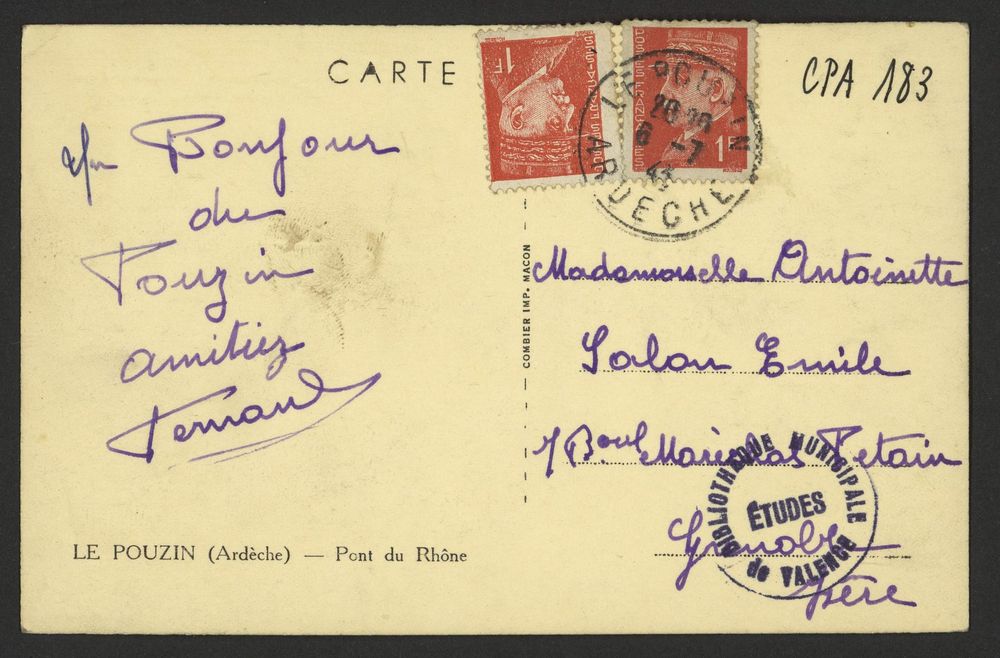 CARTE
CPA 183
1F
POSTES FRANÇAISES
1F
LE POUZIN
6 -7
43
ARDECHE
Bonjour
du
Pouzin
amitiez
Fernand
COMBIER IMP. MACON
Mademoiselle Antoinette
Salon Emile
Boul Maréchal Petain
Grenoble
Isère
BIBLIOTHEQUE MUNICIPALE
ÉTUDES
de VALENCE
LE POUZIN (Ardèche) — Pont du Rhône